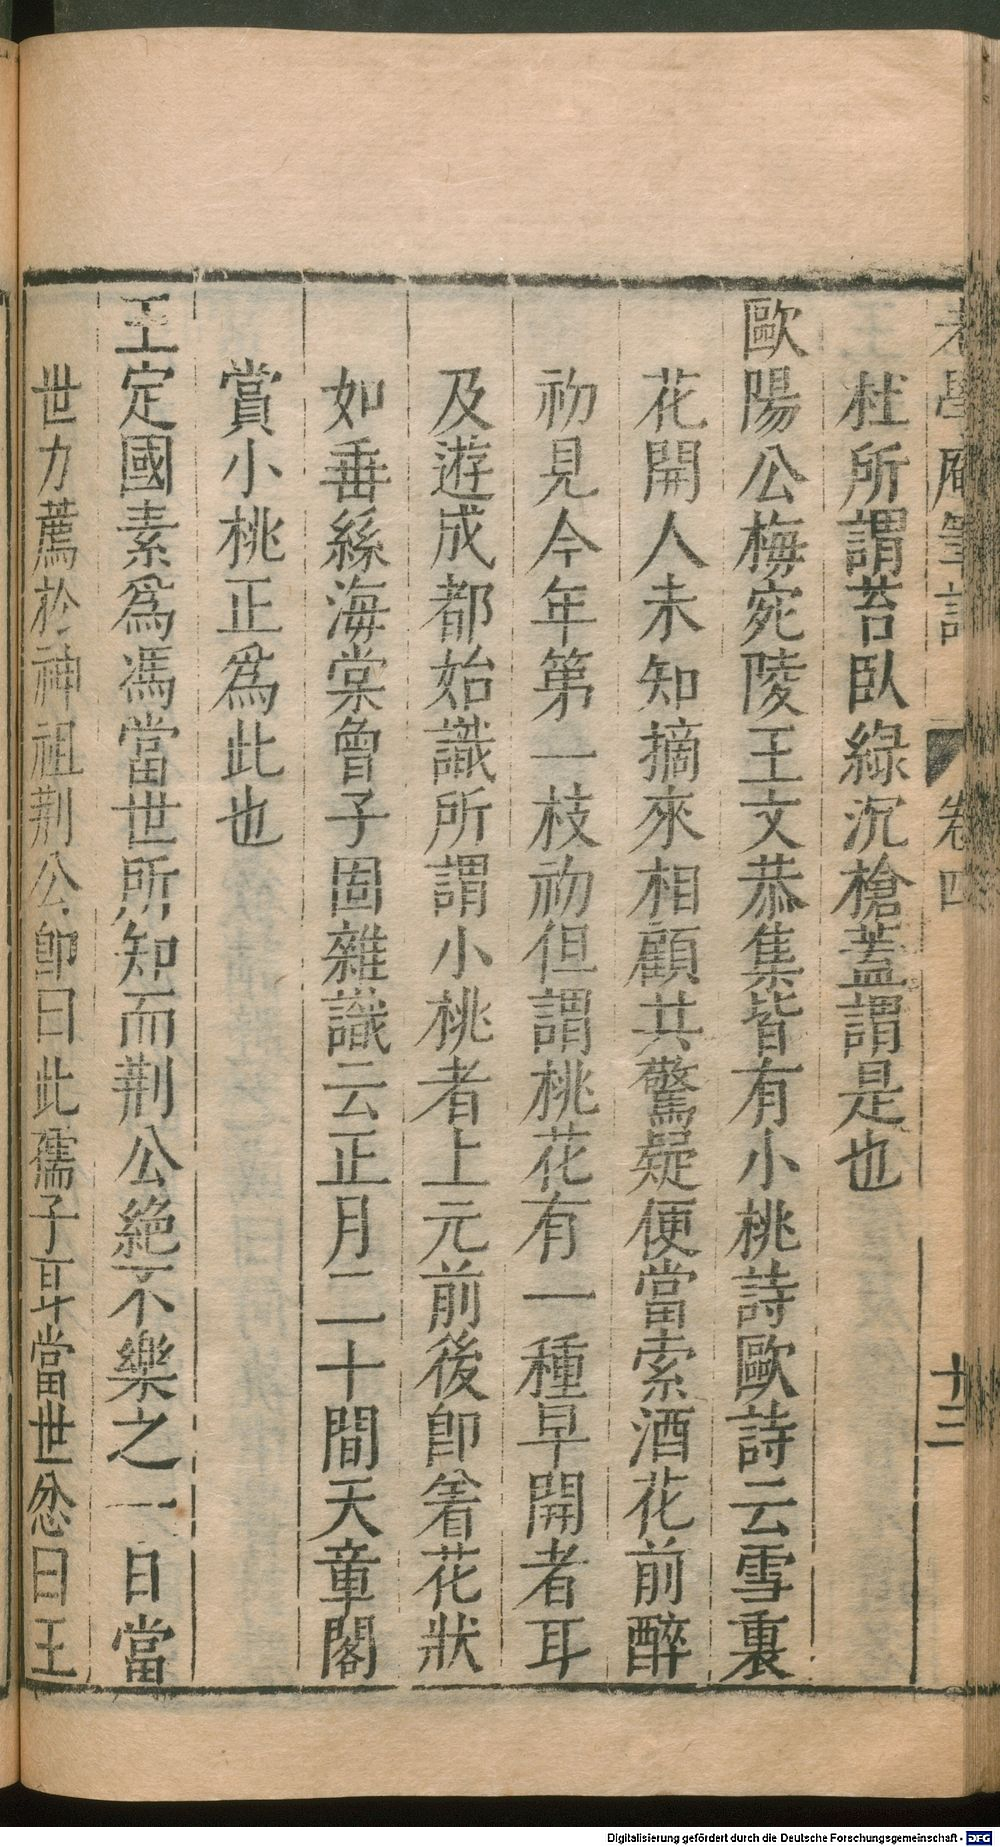 老學庵筆記 卷四 十三
杜所謂苔臥綠沉槍蓋謂是也
歐陽公梅宛陵王文恭集皆有小桃詩歐詩云雪裏
花開人未知摘來相顧共驚疑便當索酒花前醉
初見今年第一枝初但謂桃花有一種早開者耳
及遊成都始識所謂小桃者上元前後卽著花狀
如垂絲海棠曾子固雜識云正月二十間天章閣
賞小桃正爲此也
王定國素爲馮當世所知而荆公絶不樂之一日當
世力薦於神祖荆公卽曰此孺子耳當世忿曰王
Digitalisierung gefördert durch die Deutsche Forschungsgemeinschaft - DFG